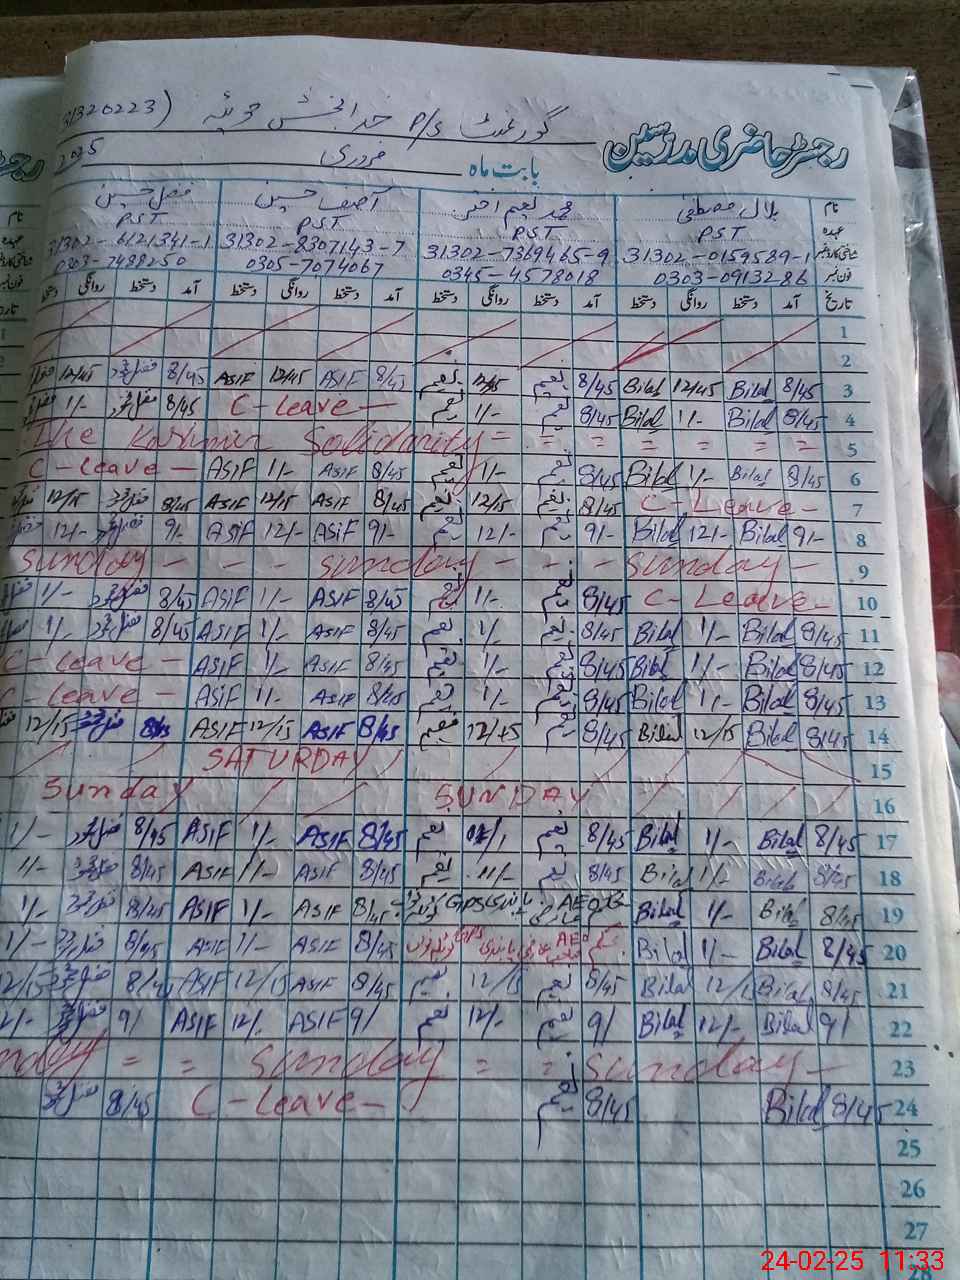 رجسٹر حاضری مدرسین
گورنمنٹ P/S خدا بخش (31320223
بابت ماہ فروری 2025
نام بلال مصطفیٰ محمد نعیم اختر آصف حسین فضل حسین
عہدہ PST PST PST PST
31302-0159589-1 31302-7369465-9 31302-8307143-7 31302-6121341-1
فون نمبر 0303-0913286 0345-4578018 0305-7074067 0303-7488250
تاریخ آمد دستخط روانگی دستخط آمد دستخط روانگی دستخط آمد دستخط روانگی دستخط آمد دستخط روانگی دستخط
1
2
3 8/45 Bilal 12/45 Bilal 8/45 نعیم 12/45 نعیم 8/45 ASIF 12/45 ASIF 8/45 12/45
4 8/45 Bilal 1/- Bilal 8/45 نعیم 1/- نعیم C-Leave- 8/45 1/-
5 The Kashmir Solidarity = = = = = = =
6 8/45 Bilal 1/- Bilal 8/45 نعیم 1/- نعیم 8/45 ASIF 1/- ASIF C-Leave-
7 C-Leave- 8/45 نعیم 12/15 نعیم 8/45 ASIF 12/15 ASIF 8/45 12/15
8 9/- Bilal 12/- Bilal 9/- نعیم 12/- نعیم 9/- ASIF 12/- ASIF 9/- 12/-
9 Sunday - - - Sunday - - - Sunday -
10 C-Leave- 8/45 نعیم 1/- نعیم 8/45 ASIF 1/- ASIF 8/45 1/-
11 8/45 Bilal 1/- Bilal 8/45 نعیم 1/- نعیم 8/45 ASIF 1/- ASIF 8/45 1/-
12 8/45 Bilal 1/- Bilal 8/45 نعیم 1/- نعیم 8/45 ASIF 1/- ASIF C-Leave-
13 8/45 Bilal 1/- Bilal 8/45 نعیم 1/- نعیم 8/45 ASIF 1/- ASIF C-Leave-
14 8/45 Bilal 12/15 Bilal 8/45 نعیم نعیم 8/45 ASIF 12/15 ASIF 8/45 12/15
15 SATURDAY
16 Sunday SUNDAY
17 8/45 Bilal 1/- Bilal 8/45 نعیم نعیم 8/45 ASIF 1/- ASIF 8/45 1/-
18 8/45 Bilal 1/- Bilal 8/45 نعیم نعیم 8/45 ASIF 1/- ASIF 8/45 1/-
19 8/45 Bilal 1/- Bilal AEO GPS 8/45 ASIF 1/- ASIF 8/45 1/-
20 8/45 Bilal 1/- Bilal AEO GPS 8/45 ASIF 1/- ASIF 8/45 1/-
21 8/45 Bilal 12/15 Bilal 8/45 نعیم 12/15 نعیم 8/45 ASIF 12/15 ASIF 8/45 12/15
22 9/ Bilal 12/- Bilal 9/ نعیم 12/- نعیم 9/ ASIF 12/- ASIF 9/ 12/-
23 = = Sunday = = Sunday -
24 8/45 Bilal 8/45 نعیم C-Leave- 8/45
25
26
27
24-02-25 11:33